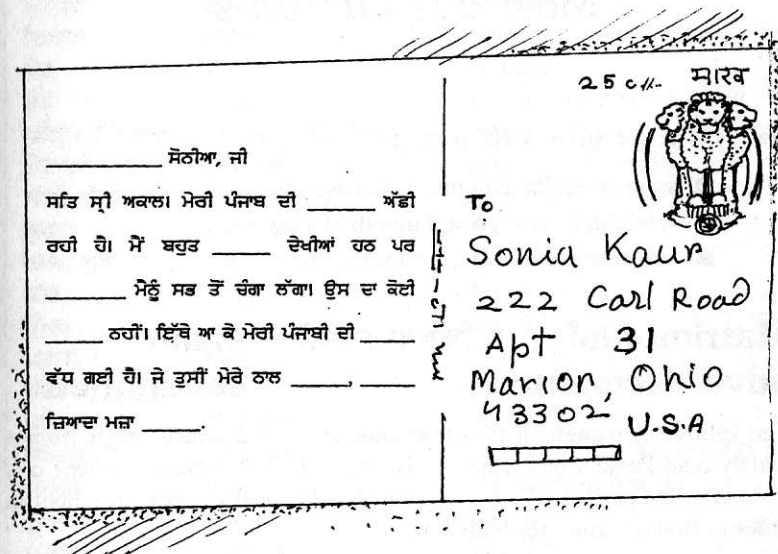 25 c/-
भारत
_______ ਸੋਨੀਆ, ਜੀ
ਸਤਿ ਸ੍ਰੀ ਅਕਾਲ। ਮੇਰੀ ਪੰਜਾਬ ਦੀ _______ ਅੱਛੀ
ਰਹੀ ਹੈ। ਮੈਂ ਬਹੁਤ _______ ਦੇਖੀਆਂ ਹਨ ਪਰ
_______ ਮੈਨੂੰ ਸਭ ਤੋਂ ਚੰਗਾ ਲੱਗਾ। ਉਸ ਦਾ ਕੋਈ
_______ ਨਹੀਂ। ਇੱਥੇ ਆ ਕੇ ਮੇਰੀ ਪੰਜਾਬੀ ਦੀ _______
ਵੱਧ ਗਈ ਹੈ। ਜੇ ਤੁਸੀਂ ਮੇਰੇ ਨਾਲ _______, _______
ਜ਼ਿਆਦਾ ਮਜ਼ਾ _______.
To
Sonia Kaur
222 Carl Road
Apt 31
Marion, Ohio
43302 U.S.A